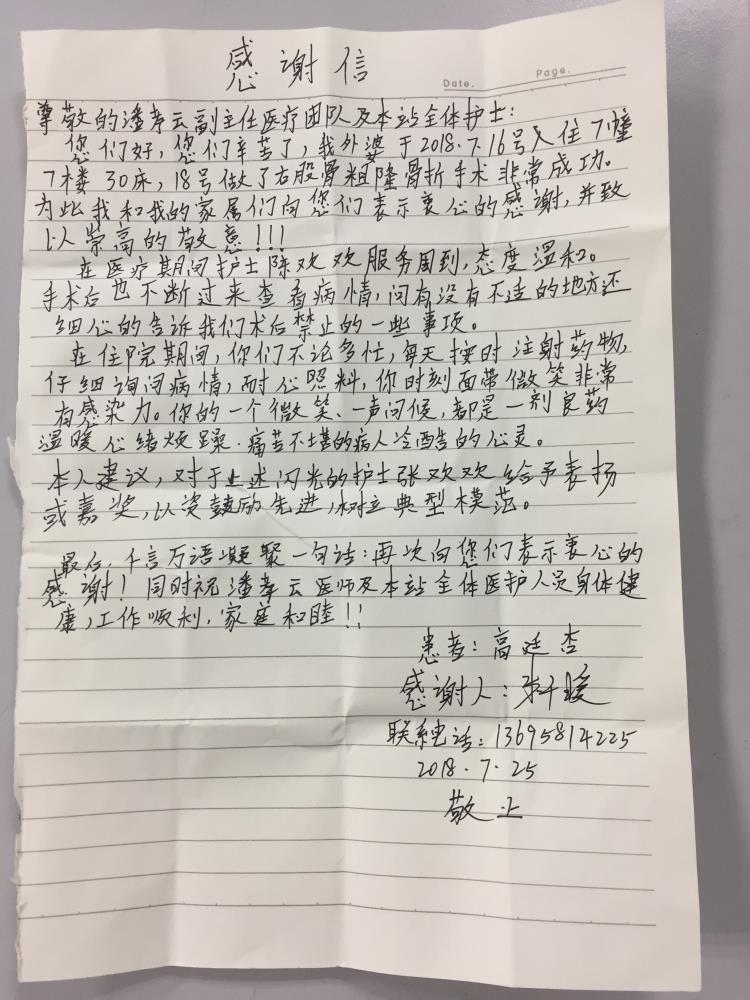 感谢信
Date.
Page.
尊敬的潘孝云副主任医疗团队及本站全体护士：
您们好，您们辛苦了，我外婆于2018.7.16号入住7幢
7楼30床，18号做了右股骨粗隆骨折手术非常成功。
为此我和我的家属们向您们表示衷心的感谢，并致
以崇高的敬意！！！
在医疗期间护士陈欢欢服务周到，态度温和。
手术后也不断过来查看病情，问有没有不适的地方还
细心的告诉我们术后禁止的一些事项。
在住院期间，你们不论多忙，每天按时注射药物，
仔细询问病情，耐心照料，你时刻面带微笑非常
有感染力。你的一个微笑、一声问候，都是一剂良药
温暖心绪烦躁．痛苦不堪的病人冷酷的心灵。
本人建议，对于上述闪光的护士张欢欢给予表扬
或嘉奖，以资鼓励先进，树立典型模范。
最后，千言万语凝聚一句话：再次向您们表示衷心的
感谢！同时祝潘孝云医师及本站全体医护人员身体健
康，工作顺利，家庭和睦！！
患者：高廷杏
感谢人：
联系电话：13695814225
2018.7.25
敬上